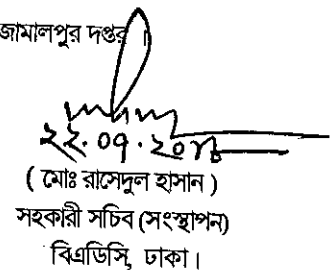 জামালপুর দপ্তর।
২২.০৭.২০
( মোঃ রাসেদুল হাসান )
সহকারী সচিব (সংস্থাপন)
বিএডিসি, ঢাকা।